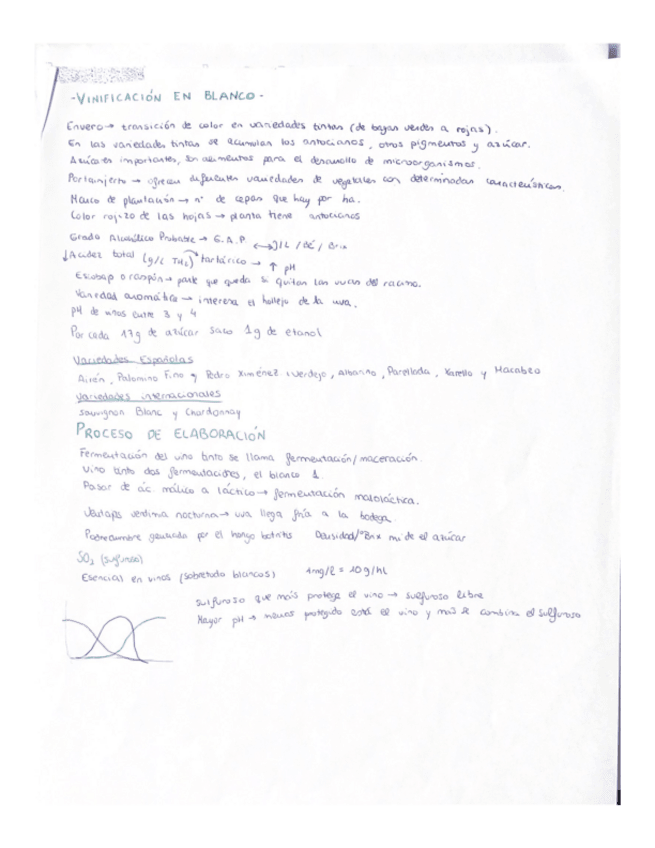 -VINIFICACIÓN EN BLANCO-
Envero → transición de color en variedades tintas (de bayas verdes a rojas).
En las variedades tintas se acumulan los antocianos, otros pigmentos y azúcar.
Azúcares importantes, son alimentos para el desarrollo de microorganismos.
Portainjerto → ofrecen diferentes variedades de vegetales con determinadas características.
Marco de plantación → nº de cepas que hay por ha.
Color rojizo de las hojas → planta tiene antocianos
Grado Alcohólico Probable → G.A.P. ↔ /Bé/ Brix
↓Acidez total (g/L TH₂) tartárico → ↑ pH
Escobajo o raspón → parte que queda si quitan las uvas del racimo.
Variedad aromática → interesa el hollejo de la uva.
pH de vinos entre 3 y 4
Por cada 17g de azúcar saco 1g de etanol
Variedades Españolas
Airén, Palomino Fino y Pedro Ximénez, verdejo, Albarino, Parellada, Xarello y Macabeo
Variedades internacionales
Sauvignon Blanc y Chardonnay
PROCESO DE ELABORACIÓN
Fermentación del vino tinto se llama fermentación/maceración.
Vino tinto dos fermentaciones, el blanco 1.
Pasar de ác. málico a láctico → fermentación maloláctica.
Ventajas vendimia nocturna → uva llega fría a la bodega.
Podredumbre generada por el hongo botritis Densidad/ºBrix mide el azúcar
SO₂ (sulfuroso)
Esencial en vinos (sobretodo blancos) 1mg/l = 10g/hl
Sulfuroso que más protege el vino → sulfuroso libre
Mayor pH → menos protegido está el vino y más se combina el sulfuroso